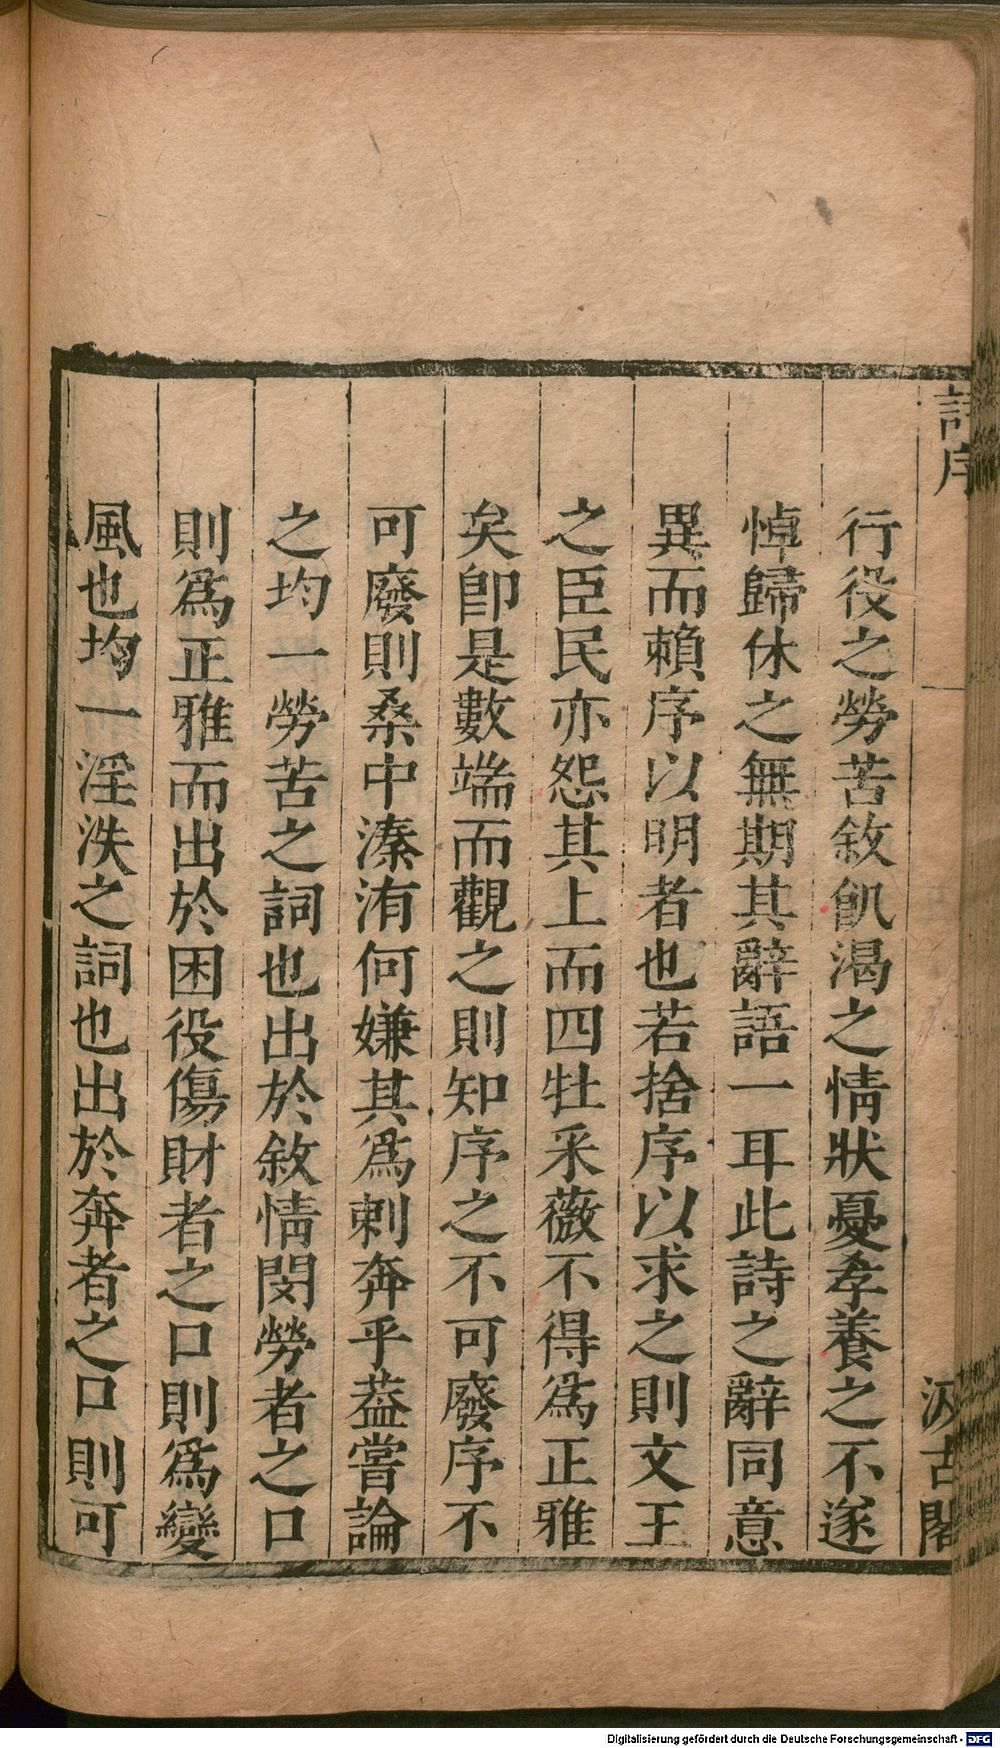 詩序
汲古閣
行役之勞苦敘飢渴之情狀憂孝養之不遂
悼歸休之無期其辭語一耳此詩之辭同意
異而賴序以明者也若捨序以求之則文王
之臣民亦怨其上而四牡釆薇不得爲正雅
矣卽是數端而觀之則知序之不可廢序不
可廢則桑中溱洧何嫌其爲刺奔乎葢嘗論
之均一勞苦之詞也出於敘情閔勞者之口
則爲正雅而出於困役傷財者之口則爲變
風也均一淫泆之詞也出於奔者之口則可
Digitalisierung gefördert durch die Deutsche Forschungsgemeinschaft - DFG